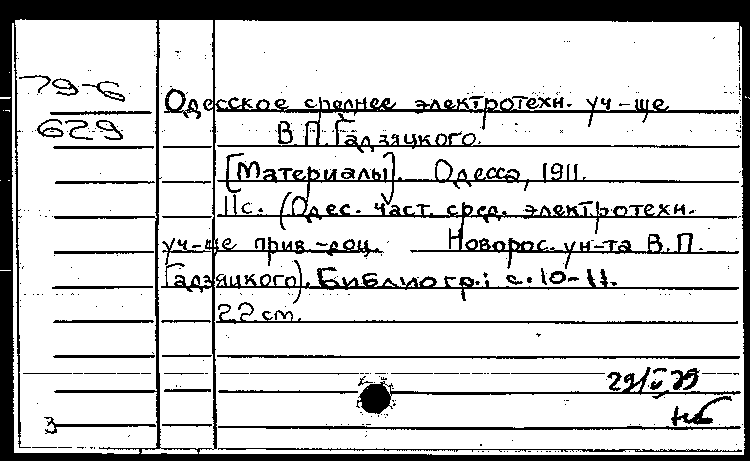 79-6
629
Одесское среднее электротехн. уч-ще
В.П. Гадзяцкого.
[Материалы]. Одесса, 1911.
11с. (Одес. част. сред. электротехн.
уч-ще прив.-доц. Новорос. ун-та В.П.
Гадзяцкого). Библиогр.: с. 10-11.
22 см.
29/V 79
нб
3